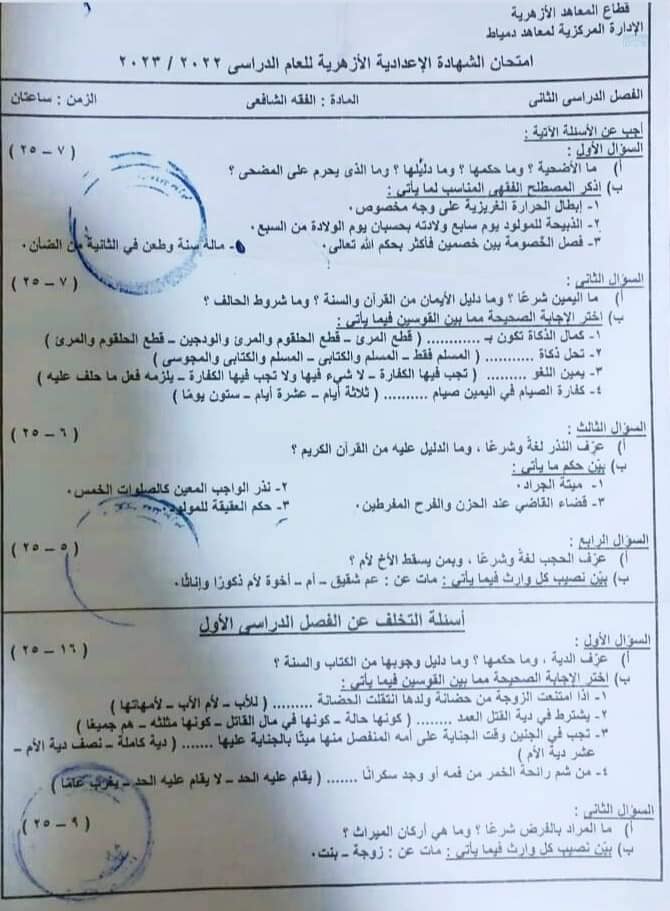 قطاع المعاهد الأزهرية
الإدارة المركزية لمعاهد دمياط
امتحان الشهادة الإعدادية الأزهرية للعام الدراسى ٢٠٢٢ / ٢٠٢٣
الفصل الدراسى الثانى المادة : الفقه الشافعى الزمن : ساعتان
أجب عن الأسئلة الآتية :
السؤال الأول : ( ٧ – ٢٥ )
أ) ما الأضحية ؟ وما حكمها ؟ وما دليلها ؟ وما الذى يحرم على المضحى ؟
ب) اذكر المصطلح الفقهى المناسب لما يأتى :
١- إبطال الحرارة الغريزية على وجه مخصوص٠
٢- الذبيحة للمولود يوم سابع ولادته بحسبان يوم الولادة من السبع٠
٣- فصل الخصومة بين خصمين فأكثر بحكم الله تعالى٠ - ماله سنة وطعن في الثانية من الضأن٠
السؤال الثانى : ( ٧ – ٢٥ )
أ) ما اليمين شرعًا ؟ وما دليل الأيمان من القرآن والسنة ؟ وما شروط الحالف ؟
ب) اختر الإجابة الصحيحة مما بين القوسين فيما يأتى :
١- كمال الذكاة تكون بـ ............ ( قطع المرئ – قطع الحلقوم والمرئ والودجين – قطع الحلقوم والمرئ )
٢- تحل ذكاة ........... ( المسلم فقط – المسلم والكتابى – المسلم والكتابى والمجوسى )
٣- يمين اللغو .......... ( تجب فيها الكفارة – لا شيء فيها ولا تجب فيها الكفارة – يلزمه فعل ما حلف عليه )
٤- كفارة الصيام في اليمين صيام .......... ( ثلاثة أيام – عشرة أيام – ستون يومًا )
السؤال الثالث : ( ٦ – ٢٥ )
أ) عرّف النذر لغة وشرعًا ، وما الدليل عليه من القرآن الكريم ؟
ب) بيّن حكم ما يأتى :
١- ميتة الجراد٠ ٢- نذر الواجب المعين كالصلوات الخمس٠
٣- قضاء القاضي عند الحزن والفرح المفرطين٠ ٣- حكم العقيقة للمولود٠
السؤال الرابع : ( ٥ – ٢٥ )
أ) عرّف الحجب لغة وشرعًا ، وبمن يسقط الأخ لأم ؟
ب) بيّن نصيب كل وارث فيما يأتى : مات عن : عم شقيق – أم – أخوة لأم ذكورًا وإناثًا٠
أسئلة التخلف عن الفصل الدراسى الأول
السؤال الأول : ( ١٦ – ٢٥ )
أ) عرّف الدية ، وما حكمها ؟ وما دليل وجوبها من الكتاب والسنة ؟
ب) اختر الإجابة الصحيحة مما بين القوسين فيما يأتى :
١- اذا امتنعت الزوجة من حضانة ولدها انتقلت الحضانة ......... ( للأب – لأم الأب – لأمهاتها )
٢- يشترط في دية القتل العمد ........ ( كونها حالة – كونها في مال القاتل – كونها مثلثه – هم جميعًا )
٣- تجب في الجنين وقت الجناية على أمه المنفصل منها ميتًا بالجناية عليها ....... ( دية كاملة – نصف دية الأم –
عشر دية الأم )
٤- من شم رائحة الخمر من فمه أو وجد سكرانًا ....... ( يقام عليه الحد – لا يقام عليه الحد – يغرب عامًا )
السؤال الثانى : ( ٩ – ٢٥ )
أ) ما المراد بالفرض شرعًا ؟ وما هي أركان الميراث ؟
ب) بيّن نصيب كل وارث فيما يأتى : مات عن : زوجة – بنت٠